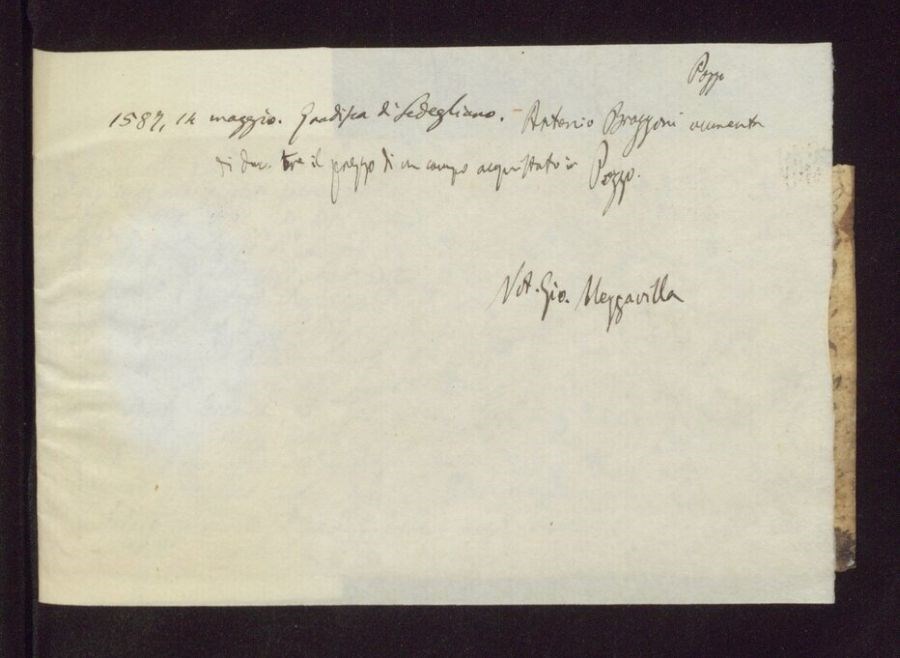 Pozzo
1587, 14 maggio. Gradisca di Sedegliano. - Antonio Braggoni aumenta
di duc. tre il prezzo di un campo acquistato in Pozzo.
Not. Gio. Mezzavilla